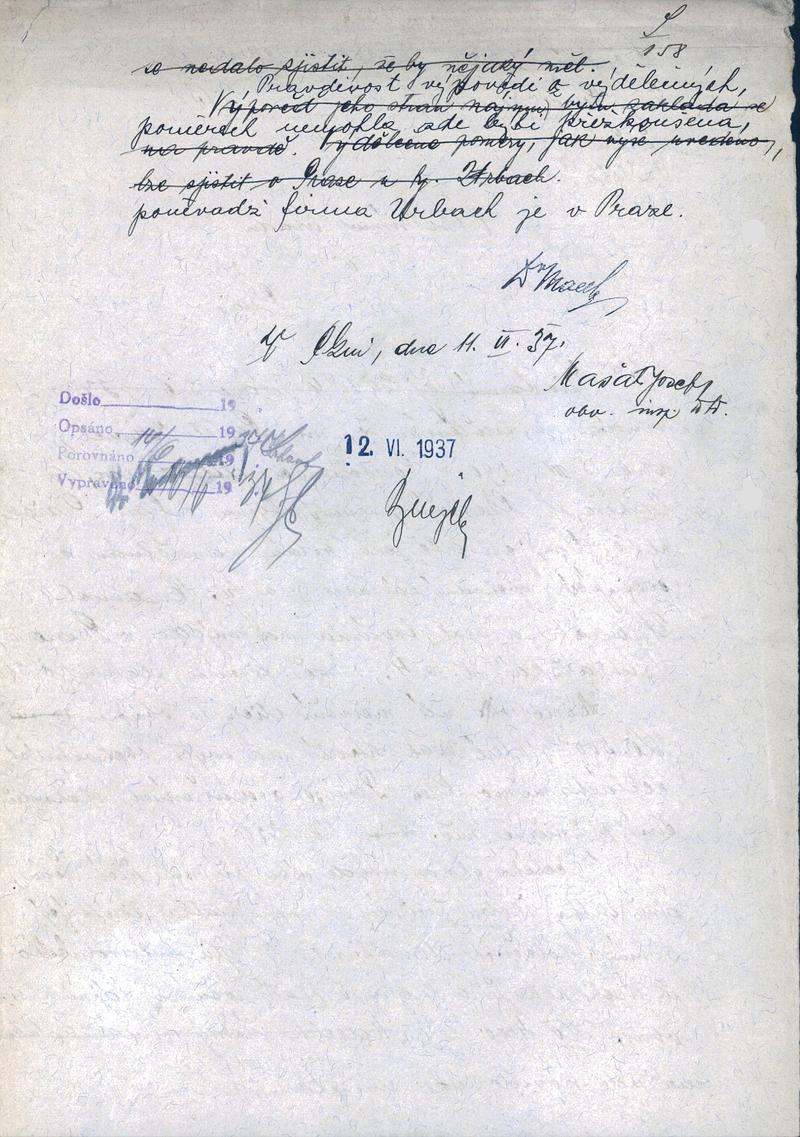 158
se nedalo zjistit, že by nějaký měl.
Pravdivost výpovědi o výdělečných,
Výpověď jeho stran nájmu) byla zakládá se
poměrech nemohla zde býti přezkoušena,
na pravdě. Výdělečné poměry, jak výše uvedeno,
lze zjistit v Praze u fy. Urbach.
poněvadž firma Urbach je v Praze.
V Plzni, dne 11. VI. 37.
Mašát Josef
obv. insp
Došlo 19
Opsáno 14/6 1937
Porovnáno 19
Vypraveno 19
12. VI. 1937